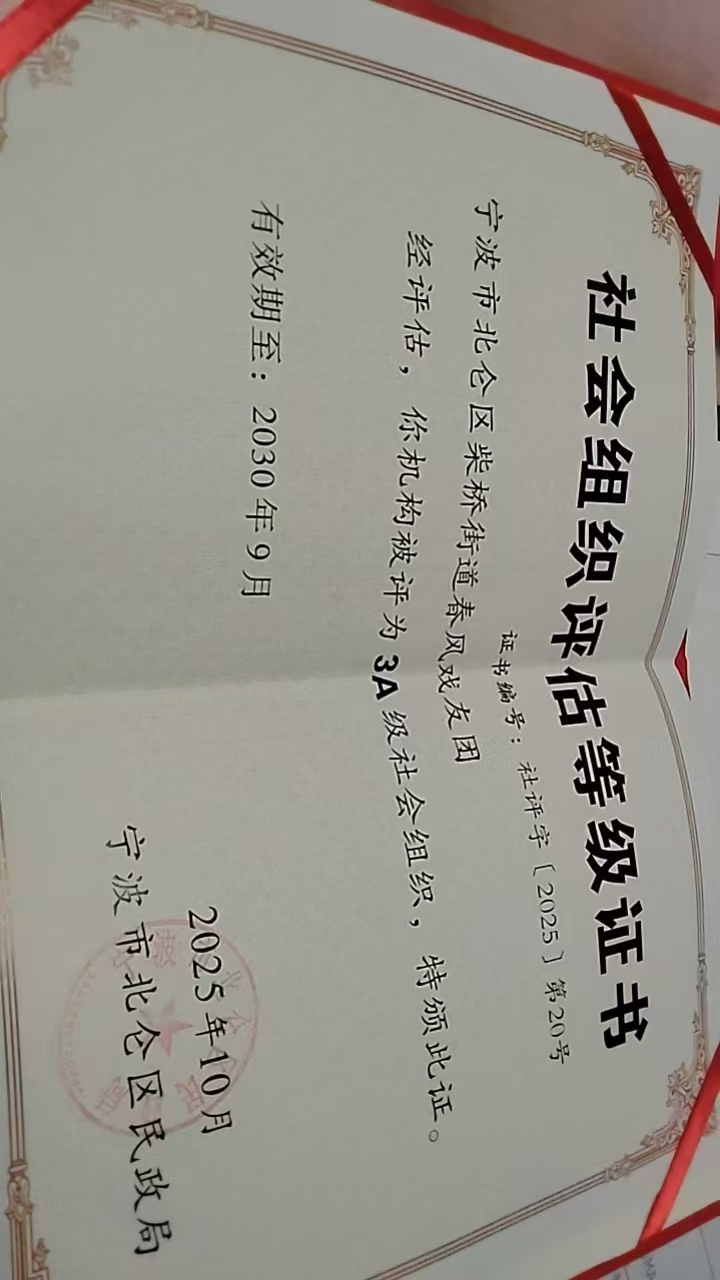 社会组织评估等级证书
证书编号：社评字〔2025〕第20号
宁波市北仑区柴桥街道春风戏友团
经评估，你机构被评为3A级社会组织，特颁此证。
有效期至：2030年9月
2025年10月
宁波市北仑区民政局